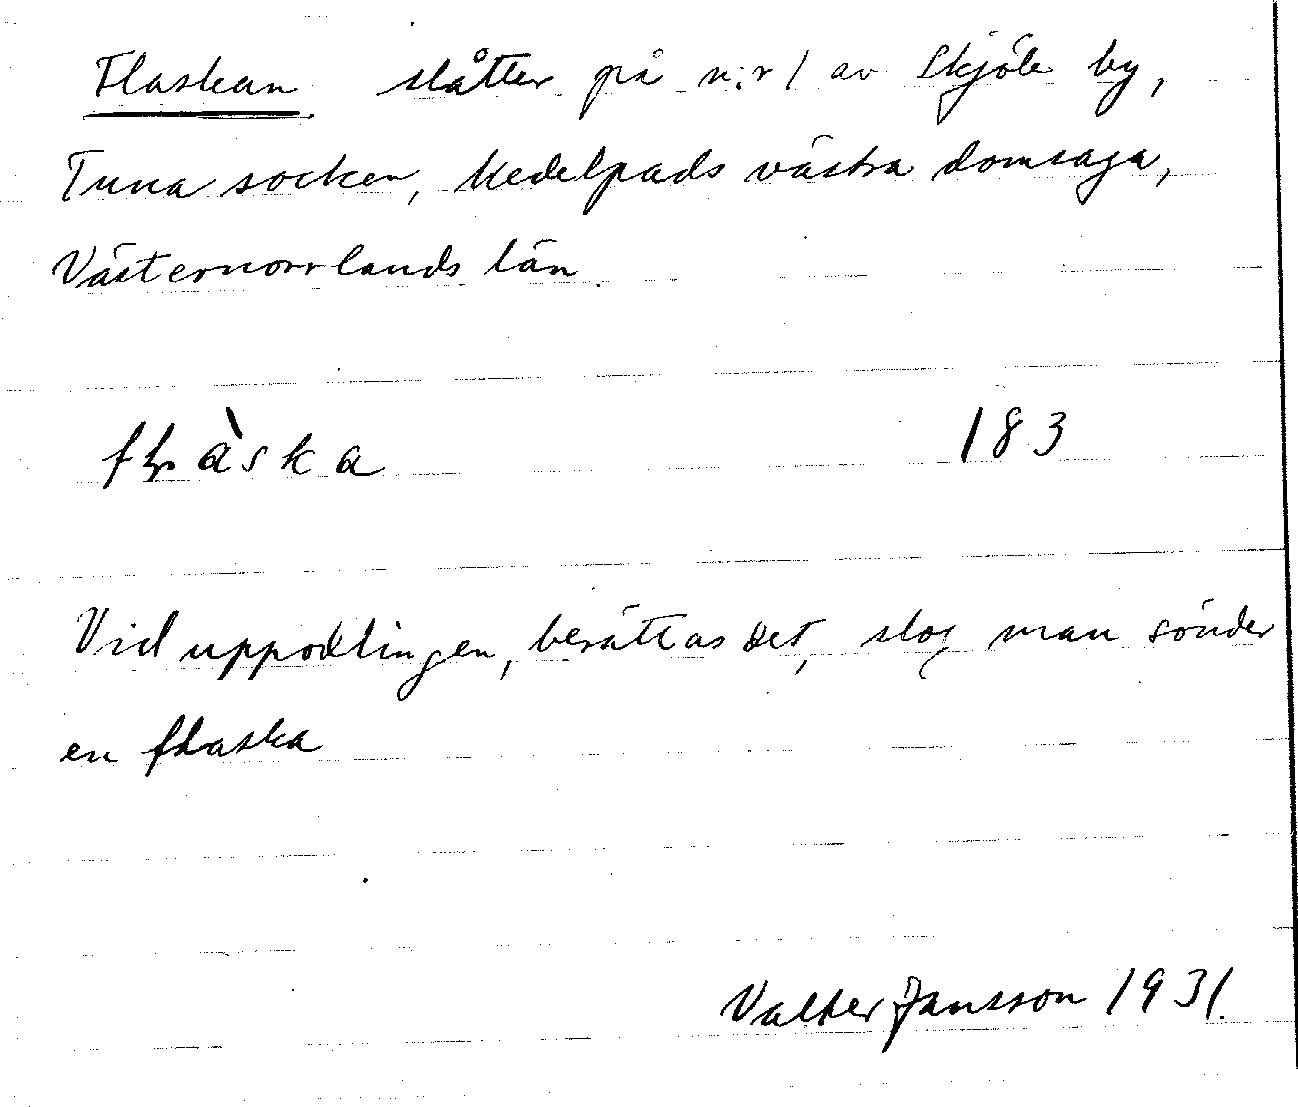 Flaskan slåtter på n:r 1 av Skjöle by,
Tuna socken, Medelpads västra domsaga,
Västernorrlands län
àska 183
Vid uppodlingen, berättas det, slog man sönder
en flaska
Valter Jansson 1931.